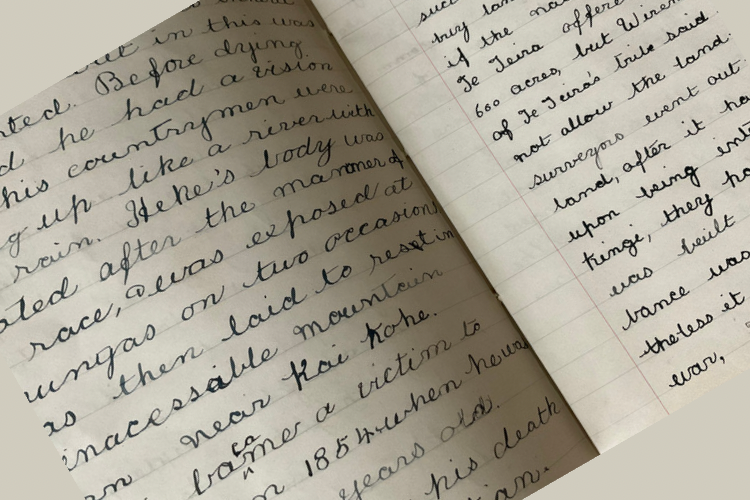 in this was
Before dying
he had a vision
his countrymen were
up like a river with
rain. Heke's body was
after the manner of
race, & was exposed at
on two occasions
then laid to rest in
inacessable mountain
near Kai Kohe.
became a victim to
1854 when he was
years old.
his death
buy
if the
Te Teira offere
600 acres, but Wirem
of Te Teira's tribe said
not allow the land.
surveyors went out.
land, after it ha
upon being ent
kinge, they ha
was built
bance was
theless it
war,